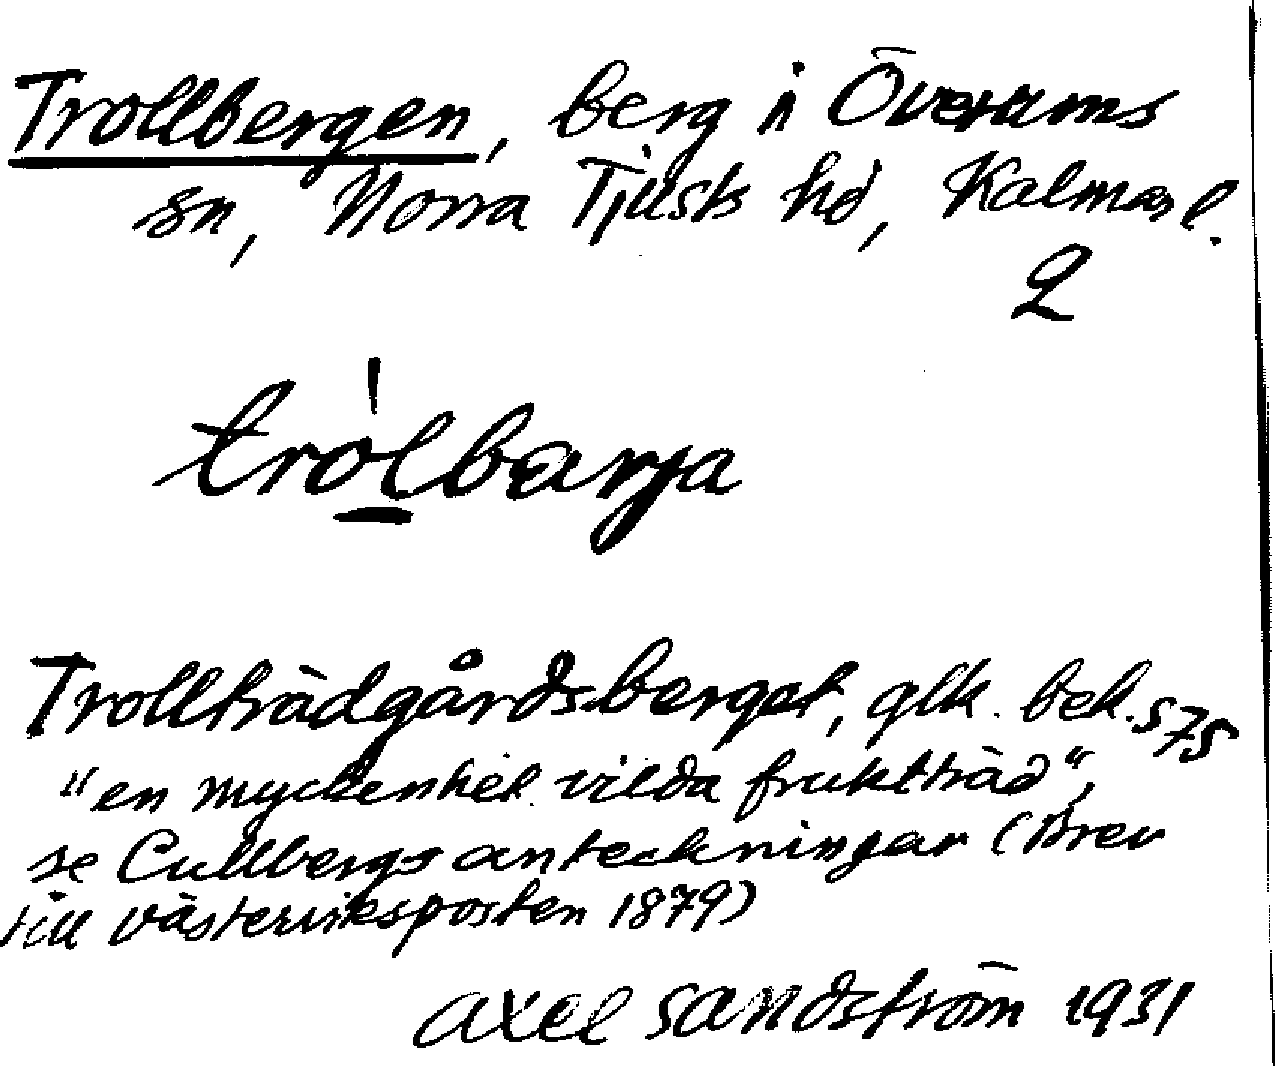 Trollbergen, berg i Överums
sn, Norra Tjusts hd, Kalmar l.
2
trolbarja
Trollträdgårdsberget, glk. bek. s 75
"en myckenhet vilda fruktträd",
se Cullbergs anteckningar (Brev
till Västerviksposten 1879)
Axel Sandström 1931